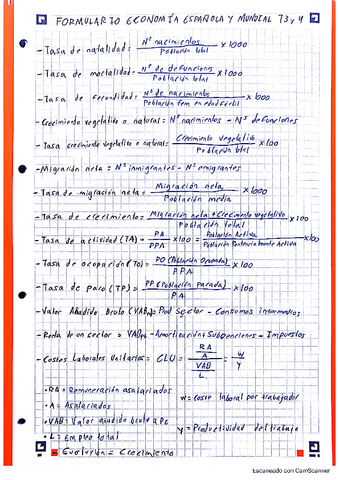 FORMULARIO ECONOMÍA ESPAÑOLA Y MUNDIAL T3 y 4
- Tasa de natalidad = Nº nacimientos / Población total x 1000
- Tasa de mortalidad = Nº de defunciones / Población total x 1000
- Tasa de fecundidad = Nº de nacimientos / Población fem en edad fértil x 1000
- Crecimiento vegetativo o natural = Nº nacimientos - Nº defunciones
- Tasa crecimiento vegetativo o natural = Crecimiento vegetativo / Población total x 100
- Migración neta = Nº inmigrantes - Nº emigrantes
- Tasa de migración neta = Migración neta / Población media x 1000
- Tasa de crecimiento = Migración neta + Crecimiento vegetativo / Población total x 100
- Tasa de actividad (TA) = PA / PPA x 100 = Población Activa / Población Potencialmente Activa x 100
- Tasa de ocupación (TO) = PO (Población Ocupada) / PPA x 100
- Tasa de paro (TP) = PP (Población parada) / PA x 100
- Valor Añadido Bruto (VAB) = Prod Sector - Consumos intermedios
- Renta de un sector = VAB - Amortización + Subvenciones - Impuestos
- Costes Laborales Unitarios = CLU = RA / A / VAB / L = w / y
• RA = Remuneración asalariados
w = Coste laboral por trabajador
• A = Asalariados
• VAB = Valor añadido bruto a Pc
y = Productividad del trabajo
• L = Empleo total
Evolución = Crecimiento
Escaneado con CamScanner